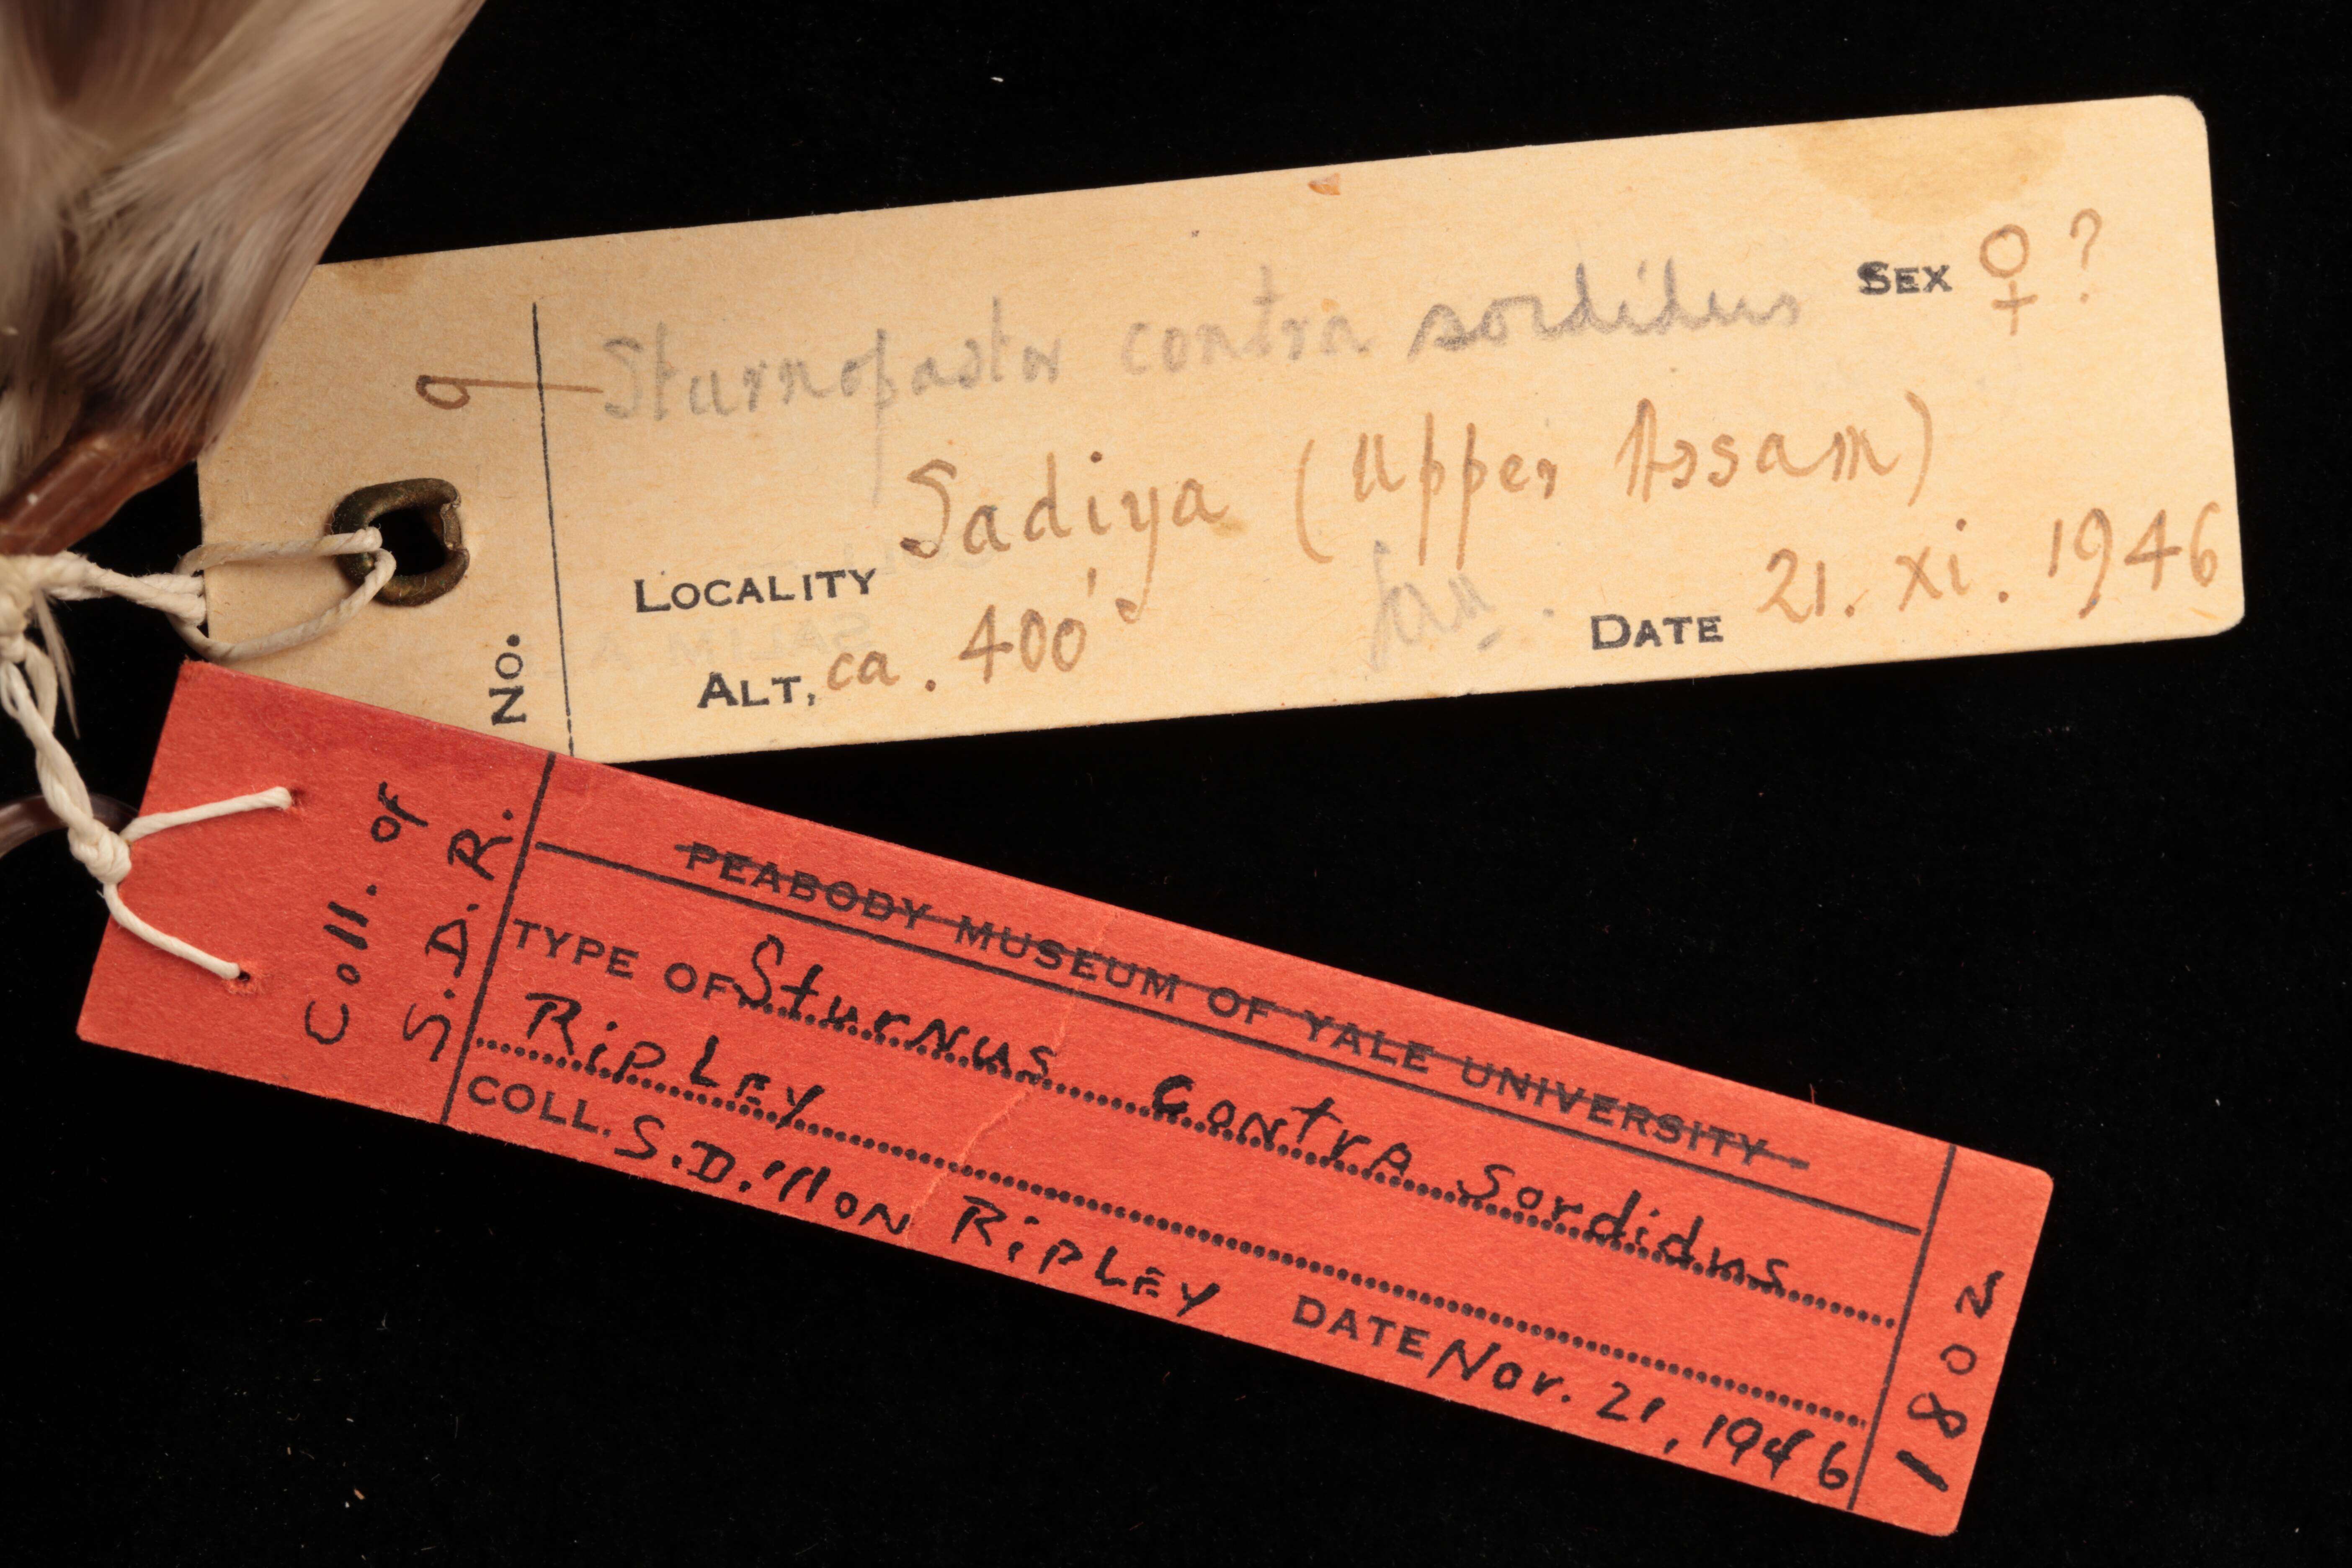 Sturnopastor contra sordidus SEX ♀ ?
LOCALITY Sadiya (Upper Assam)
ALT, ca. 400' DATE 21. xi. 1946
No. 9
Coll. of
S. D. R.
PEABODY MUSEUM OF YALE UNIVERSITY
TYPE OF Sturnus contra sordidus
RipLEy
COLL. S. Dillon RipLEy DATE Nov. 21, 1946
1802